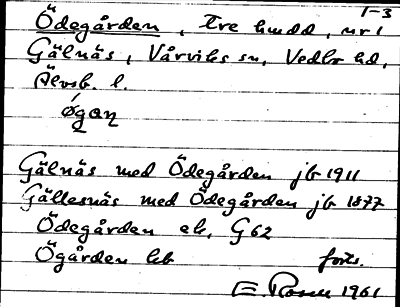 1-3
Ödegården, Tre hmdd, nr 1
Gälnäs, Vårviks sn, Vedbo hd,
Älvsb. l.
øgaɳ
Gälnäs med Ödegården jb 1911
Gällesnäs med Ödegården jb 1877
Ödegården ek, G62
Ögården kb
forts.
E Rosen 1961